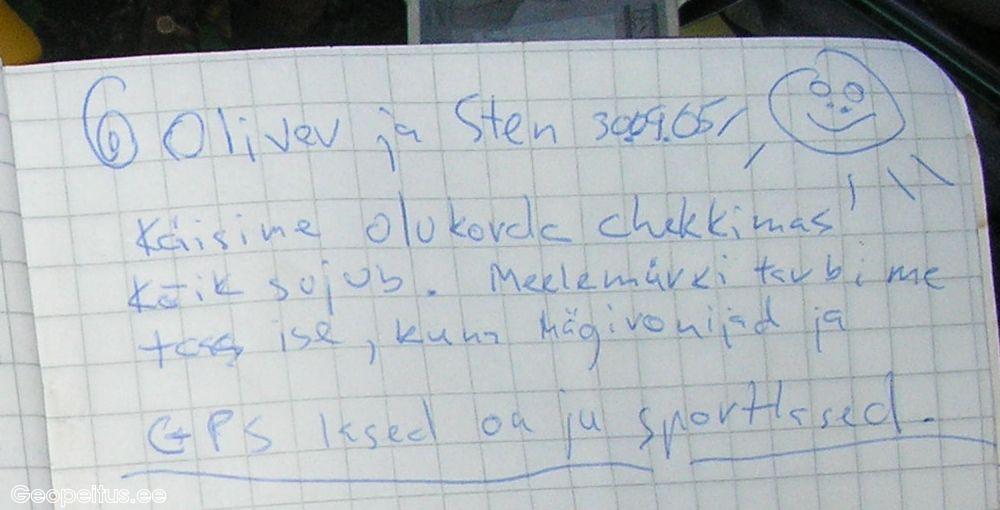 6 Oliver ja Sten 30.09.05
Käisime olukorda chekkimas
Kõik sujub. Meelemürki tarbime
ise, kuna Mägironijad ja
GPS lased on ju sportlased.
Geopeitus.ee